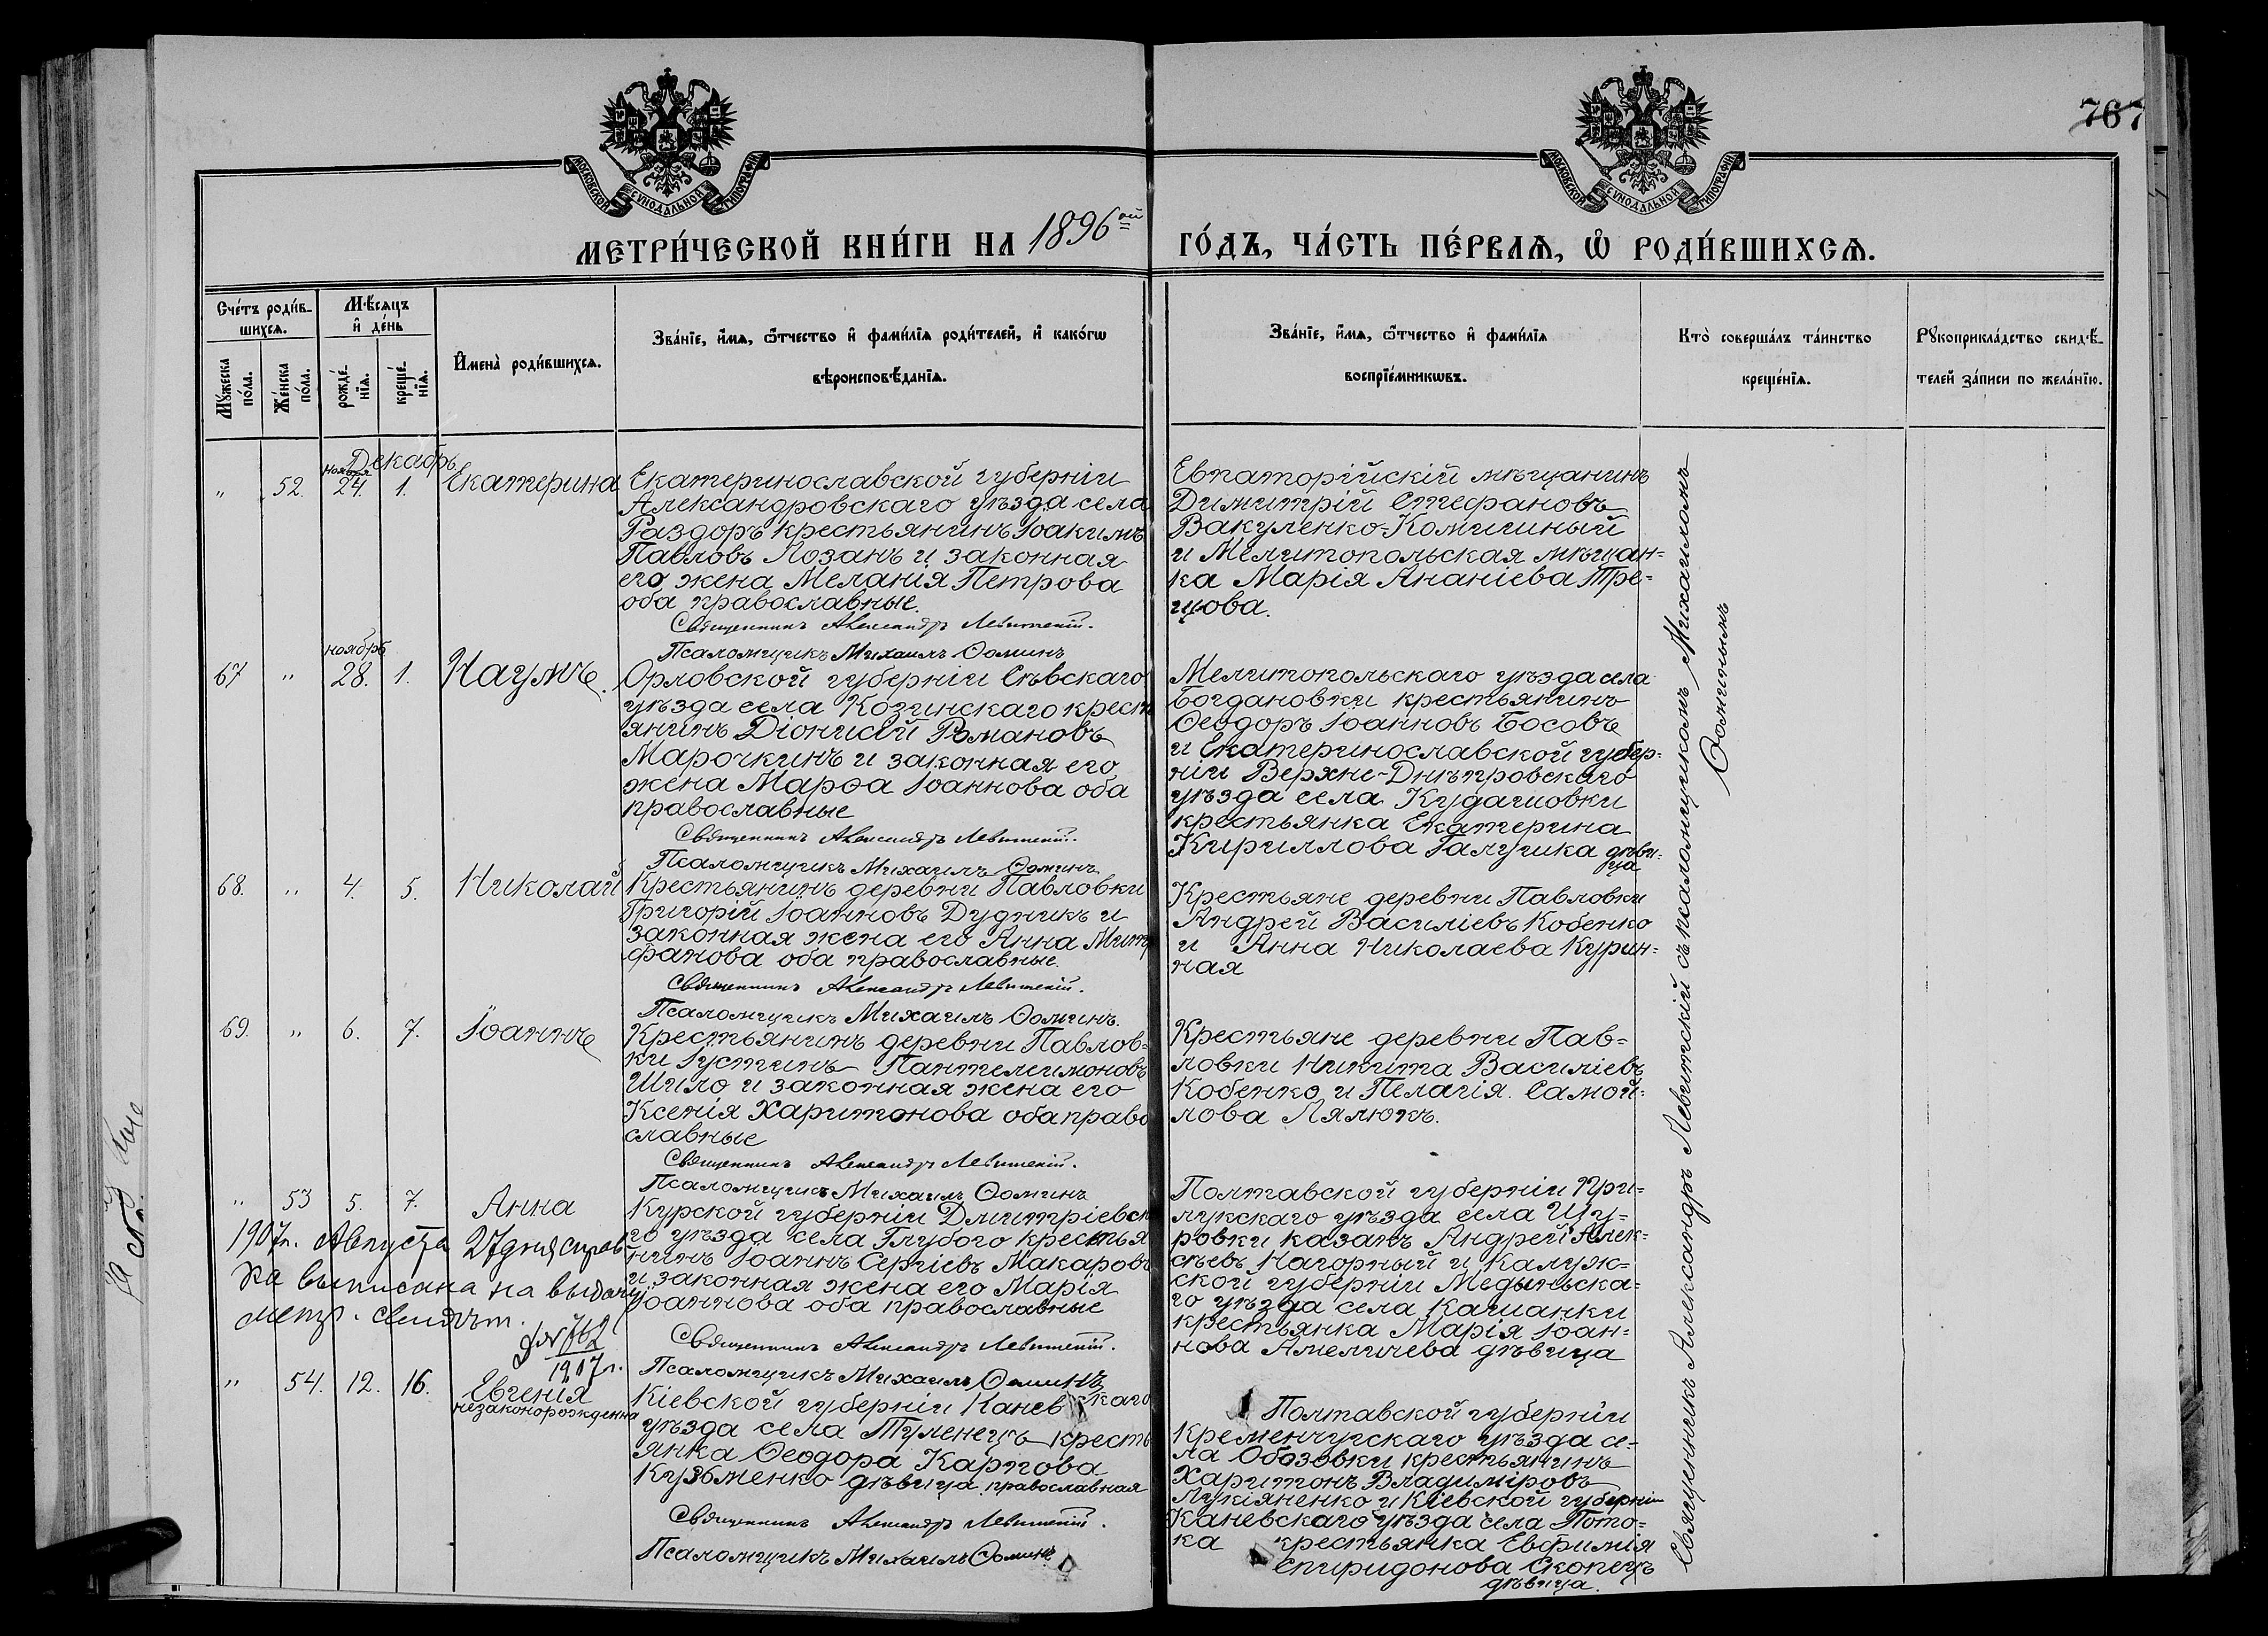 767
МОСКОВСКОЙ СѴНОДАЛЬНОЙ ТИПОГРАФІИ
МОСКОВСКОЙ СѴНОДАЛЬНОЙ ТИПОГРАФІИ
МЕТРИ́ЧЕСКОЙ КНИ́ГИ НА 1896ой ГО́ДЪ, ЧА́СТЬ ПЕ́РВАѦ, Ѡ РОДИ́ВШИХСѦ.
Сче́тъ роди́в-
шихсѧ.
Мꙋ́жеска
по́ла.
Же́нска
по́ла.
Мѣ́сѧцъ
и де́нь
рожде́-
нїѧ.
креще́-
нїѧ.
Имена̀ роди́вшихсѧ.
Зва́нїе, и́мѧ, ѻ́тчество и фами́лїѧ роди́телей, и како́гѡ
вѣроисповѣ́данїѧ.
Зва́нїе, и́мѧ, ѻ́тчество и фами́лїѧ
воспрїе́мникѡвъ.
Кто̀ соверша́лъ та́инство
креще́нїѧ.
Рꙋкоприкла́дство свидѣ́-
телей за́писи по жела́нїю.
Декабрь
ноября
" 52. 24. 1. Екатерина
Екатеринославской губерніи
Александровскаго уѣзда села
Раздоръ крестьянинъ Іоакимъ
Павловъ Лозанъ и законная
его жена Меланія Петрова
оба православные.
Священникъ Александръ Левитскій.
Псаломщикъ Михаилъ Ѳоминъ
Евпаторійскій мѣщанинъ
Димитрій Стефановъ
Вакуленко-Комишный
и Мелитопольская мѣщан=
ка Марія Ананіева Тре=
цова.
ноябрь
67 " 28. 1. Наумъ.
Орловской губерніи Сѣвскаго
уѣзда села Козинскаго кресть
янинъ Діонисій Романовъ
Марочкинъ и законная его
жена Марѳа Іоаннова оба
православные
Священникъ Александръ Левитскій.
Псаломщикъ Михаилъ Ѳоминъ
Мелитопольскаго уѣзда села
Богдановки крестьянинъ
Ѳеодоръ Іоанновъ Босовъ
и Екатеринославской губер=
ніи Верхне-Днѣпровскаго
уѣзда села Кудашовки
крестьянка Екатерина
Кириллова Галушка дѣви=
ца
68. " 4. 5. Николай
Крестьянинъ деревни Павловки
Григорій Іоанновъ Дудникъ и
законная жена его Анна Митр
фанова оба православные.
Священникъ Александръ Левитскій.
Псаломщикъ Михаилъ Ѳоминъ.
Крестьяне деревни Павловки
Андрей Василіевъ Кобенко
и Анна Николаева Курин=
ная
69. " 6. 7. Іоаннъ
Крестьянинъ деревни Павлов=
ки Іустинъ Пантелеимоновъ
Шило и законная жена его
Ксенія Харитонова оба право
славные
Священникъ Александръ Левитскій.
Псаломщикъ Михаилъ Ѳоминъ
Крестьяне деревни Пав=
ловки Никита Василіевъ
Кобенко и Пелагія Самой=
лова Лялюкъ.
" 53 5. 7. Анна
Курской губерніи Дмитріевска
го уѣзда села Глубого крестья
нинъ Іоаннъ Сергіевъ Макаровъ
и законная жена его Марія
Іоаннова оба православные
Священникъ Александръ Левитскій.
Псаломщикъ Михаилъ Ѳоминъ
1907г. Августа 27 дня справ
ка выписана на выдачу
метр. свидѣт.
№ 762
1907г.
Полтавской губерніи При=
лукскаго уѣзда села Щу=
ровки казакъ Андрей Алек=
сѣевъ Нагорный и Калуж=
ской губерніи Медыньска=
го уѣзда села Кашанки
крестьянка Марія Іоан=
нова Амеличева дѣвица
" 54. 12. 16. Евгенія
незаконорожденна
Кіевской губерніи Каневскаго
уѣзда села Тулинецъ кресть
янка Ѳеодора Карпова
Кузьменко дѣвица православная
Священникъ Александръ Левитскій.
Псаломщикъ Михаилъ Ѳоминъ
Полтавской губерніи
Кременчугскаго уѣзда се=
ла Обозовки крестьянинъ
Харитонъ Владиміровъ
Лукіяненко и Кіевской губерніи
Каневскаго уѣзда села Пото=
ка крестьянка Евфимія
Спиридонова Скопецъ
дѣвица.
Священникъ Александръ Левитскій съ псаломщикомъ Михаиломъ
Ѳоминымъ